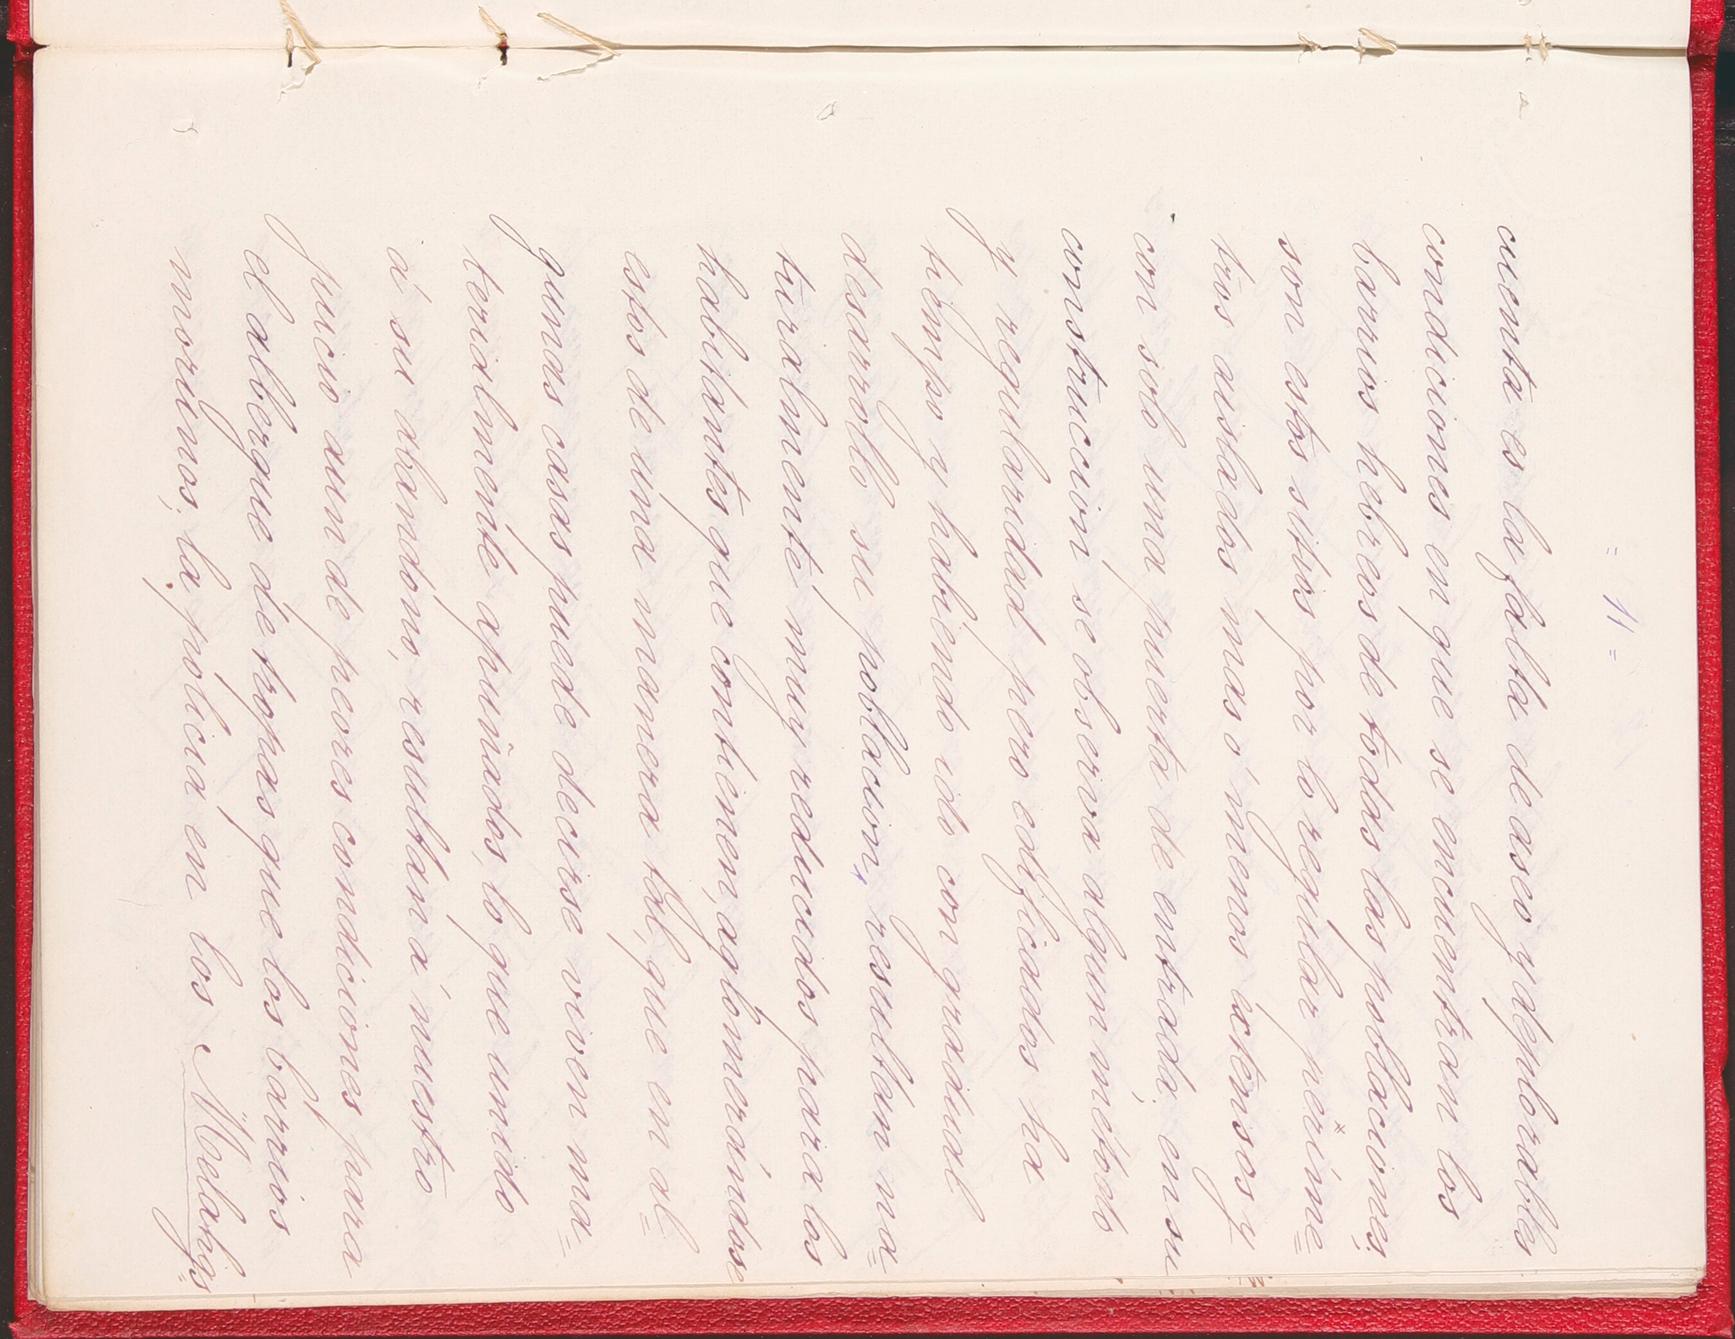 = 11 =
cuenta es la falta de aseo y deplorables
condiciones en que se encuentran los
barrios hebreos de todas las poblaciones;
son estos sitios por lo regular períme=
tros aislados mas ó menos extensos y
con solo una puerta de entrada; en su
construccion se observa algun método
y regularidad pero edificados ha
tiempo y habiendo ido con gradual
desarrollo su poblacion, resultan na=
turalmente muy reducidos para los
habitantes que contienen, aglomerándose
estos de una manera tal, que en al=
gunas casas puede decirse viven ma=
terialmente apiñados, lo que unido
á su abandono, resultan á nuestro
juicio aun de peores condiciones para
el albergue de tropas que los barrios
morunos; la policia en los Melahgs=